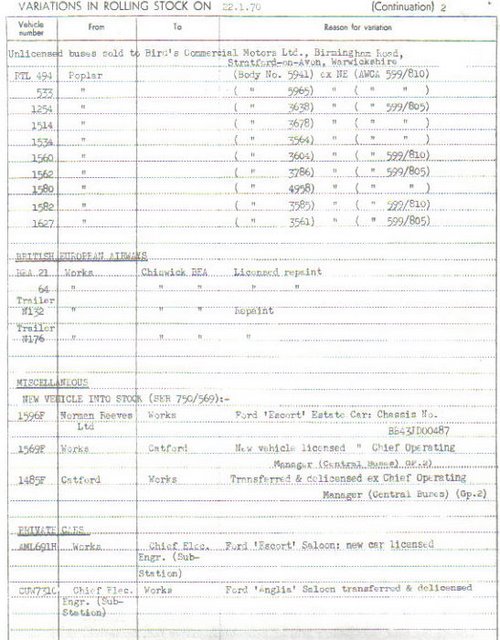 VARIATIONS IN ROLLING STOCK ON 22.1.70 (Continuation) 2
Vehicle number From To Reason for variation
Unlicensed buses sold to Bird's Commercial Motors Ltd., Birmingham Road,
Stratford-on-Avon, Warwickshire
RTL 494 Poplar (Body No. 5941) ex NE (AWCA 599/810)
533 " ( " 5965) " ( " " )
1254 " ( " 3638) " ( " 599/805)
1514 " ( " 3678) " ( " " )
1534 " ( " 3564) " ( " " )
1560 " ( " 3604) " ( " 599/810)
1562 " ( " 3786) " ( " 599/805)
1580 " ( " 4958) " ( " " )
1582 " ( " 3585) " ( " 599/810)
1627 " ( " 3561) " ( " 599/805)
BRITISH EUROPEAN AIRWAYS
BEA 21 Works Chiswick BEA Licensed repaint
64 " " " " "
Trailer
N132 " " " Repaint
Trailer
N176 " " " "
MISCELLANEOUS
NEW VEHICLE INTO STOCK (SER 750/569):-
1596F Norman Reeves Works Ford 'Escort' Estate Car: Chassis No.
Ltd BB43JD00487
1569F Works Catford New vehicle licensed " Chief Operating
Manager (Central Buses) Gp.2)
1485F Catford Works Transferred & delicensed ex Chief Operating
Manager (Central Buses) (Gp.2)
PRIVATE CARS
AML691H Works Chief Elec. Ford 'Escort' Saloon: new car licensed
Engr. (Sub-
Station)
CUW731C Chief Elec. Works Ford 'Anglia' Saloon transferred & delicensed
Engr. (Sub-
Station)